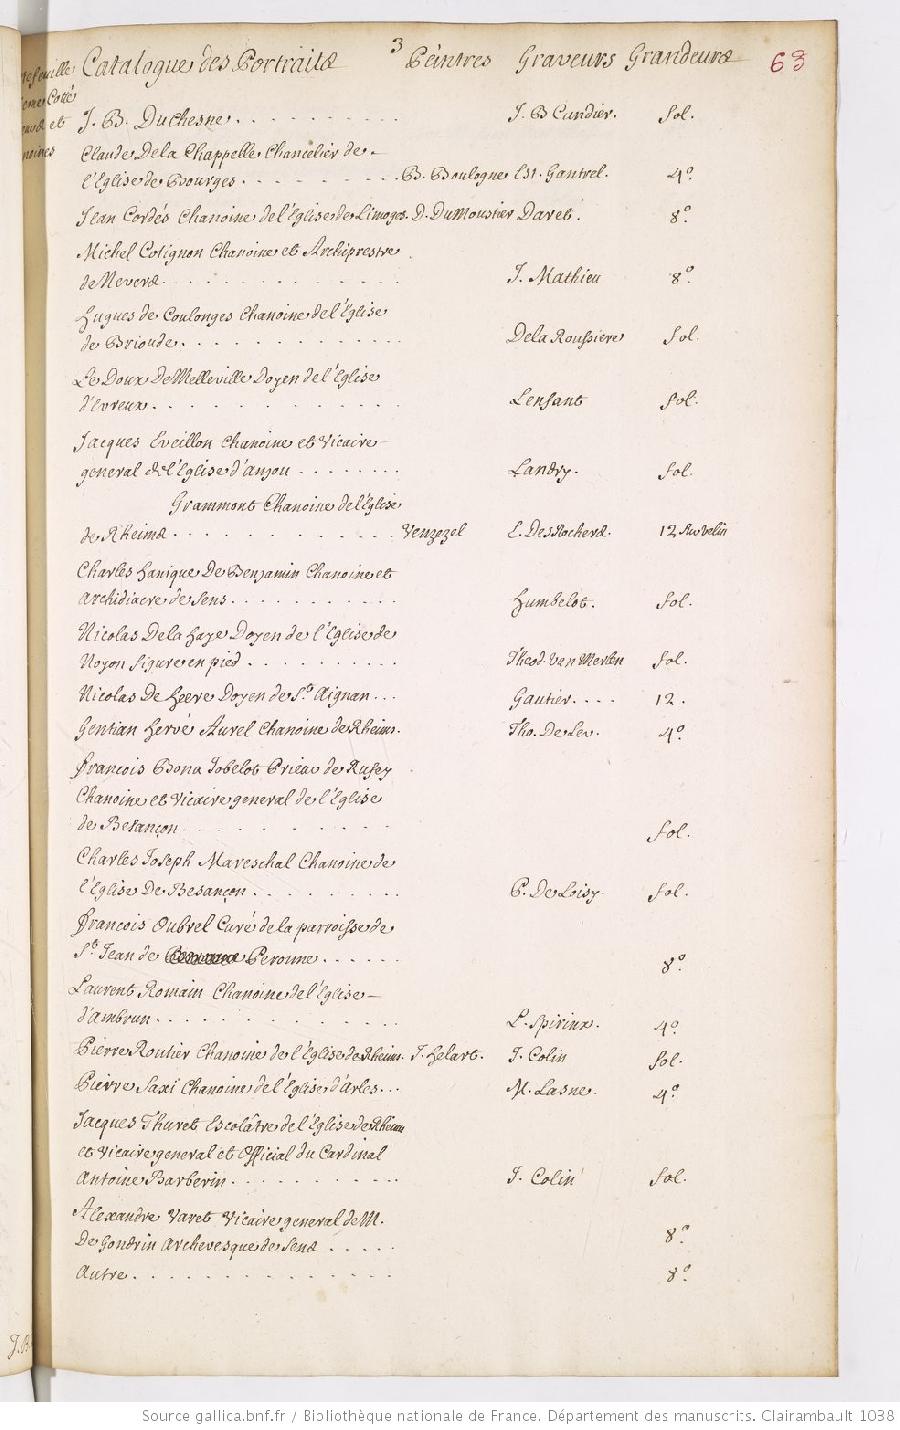 3
Catalogue des Portraits Peintres Graveurs Grandeurs 63
J. B. Duchesne . . . . . . . . . . J. B Cundier. fol.
Claude Dela Chappelle Chancelier de
l'Eglise de Bourges . . . . . . . . . B. Boulogne Est. Gantrel. 4º.
Jean Cordés Chanoine de l'Eglise de Limoges. D. DuMoustier Daret. 8º
Michel Cotignon Chanoine et Archiprestre
de Nevers . . . . . . . . . . . . . J. Mathieu 8º.
Hugues de Coulonges Chanoine de l'Eglise
de Brioude . . . . . . . . . . . . De la Roussiere fol.
Le Doux De Melleville Doyen de l'Eglise
d'Evreux . . . . . . . . . . . . Lenfant fol.
Jacques Eveillon Chanoine et Vicaire
general de l'Eglise d'Anjou . . . . . . . Landry. fol.
Grammont Chanoine de l'Eglise
de Rheims . . . . . . . . . . . . E. DesRochers. 12 Su velin
Charles Hanique De Benjamin Chanoine et
Archidiacre de Sens . . . . . . . . . . . Humbelot. fol.
Nicolas De la Haye Doyen de l'Eglise de
Noyon figure en pied . . . . . . . . . . Theod. Van Merlen fol.
Nicolas De Heere Doyen de St. Aignan . . . Gautier . . . . 12.
Gentian Hervé Aurel Chanoine de Rheims. Tho. De Leu. 4º.
François Bona Jobelot Prieur de Rusey
Chanoine et Vicaire general de l'Eglise
de Besançon . . . . . . . . fol.
Charles Joseph Mareschal Chanoine de
l'Eglise De Besançon . . . . . . . . . P. De Loisy fol.
François Oubrel Curé de la parroisse de
St. Jean de Peronne . . . . . . 8º.
Laurent Romain Chanoine de l'Eglise
d'Ambrun . . . . . . . . . . . . . L. Spirinx. 4º.
Pierre Routier Chanoine de l'Eglise de Rheims. J. Helart. J. Colin fol.
Pierre Saxi Chanoine de l'Eglise d'Arles . . . M. Lasne. 4º.
Jacques Thuret Escolâtre de l'Eglise de Rheims
et Vicaire general et Official du Cardinal
Antoine Barberin . . . . . . . . . . . J. Colin fol.
Alexandre Varet Vicaire general de M.
De Gondrin Archevesque de Sens . . . . . 8º.
Autre . . . . . . . . . . . . . . . . 8º.
Source gallica.bnf.fr / Bibliothèque nationale de France. Département des manuscrits. Clairambault 1038